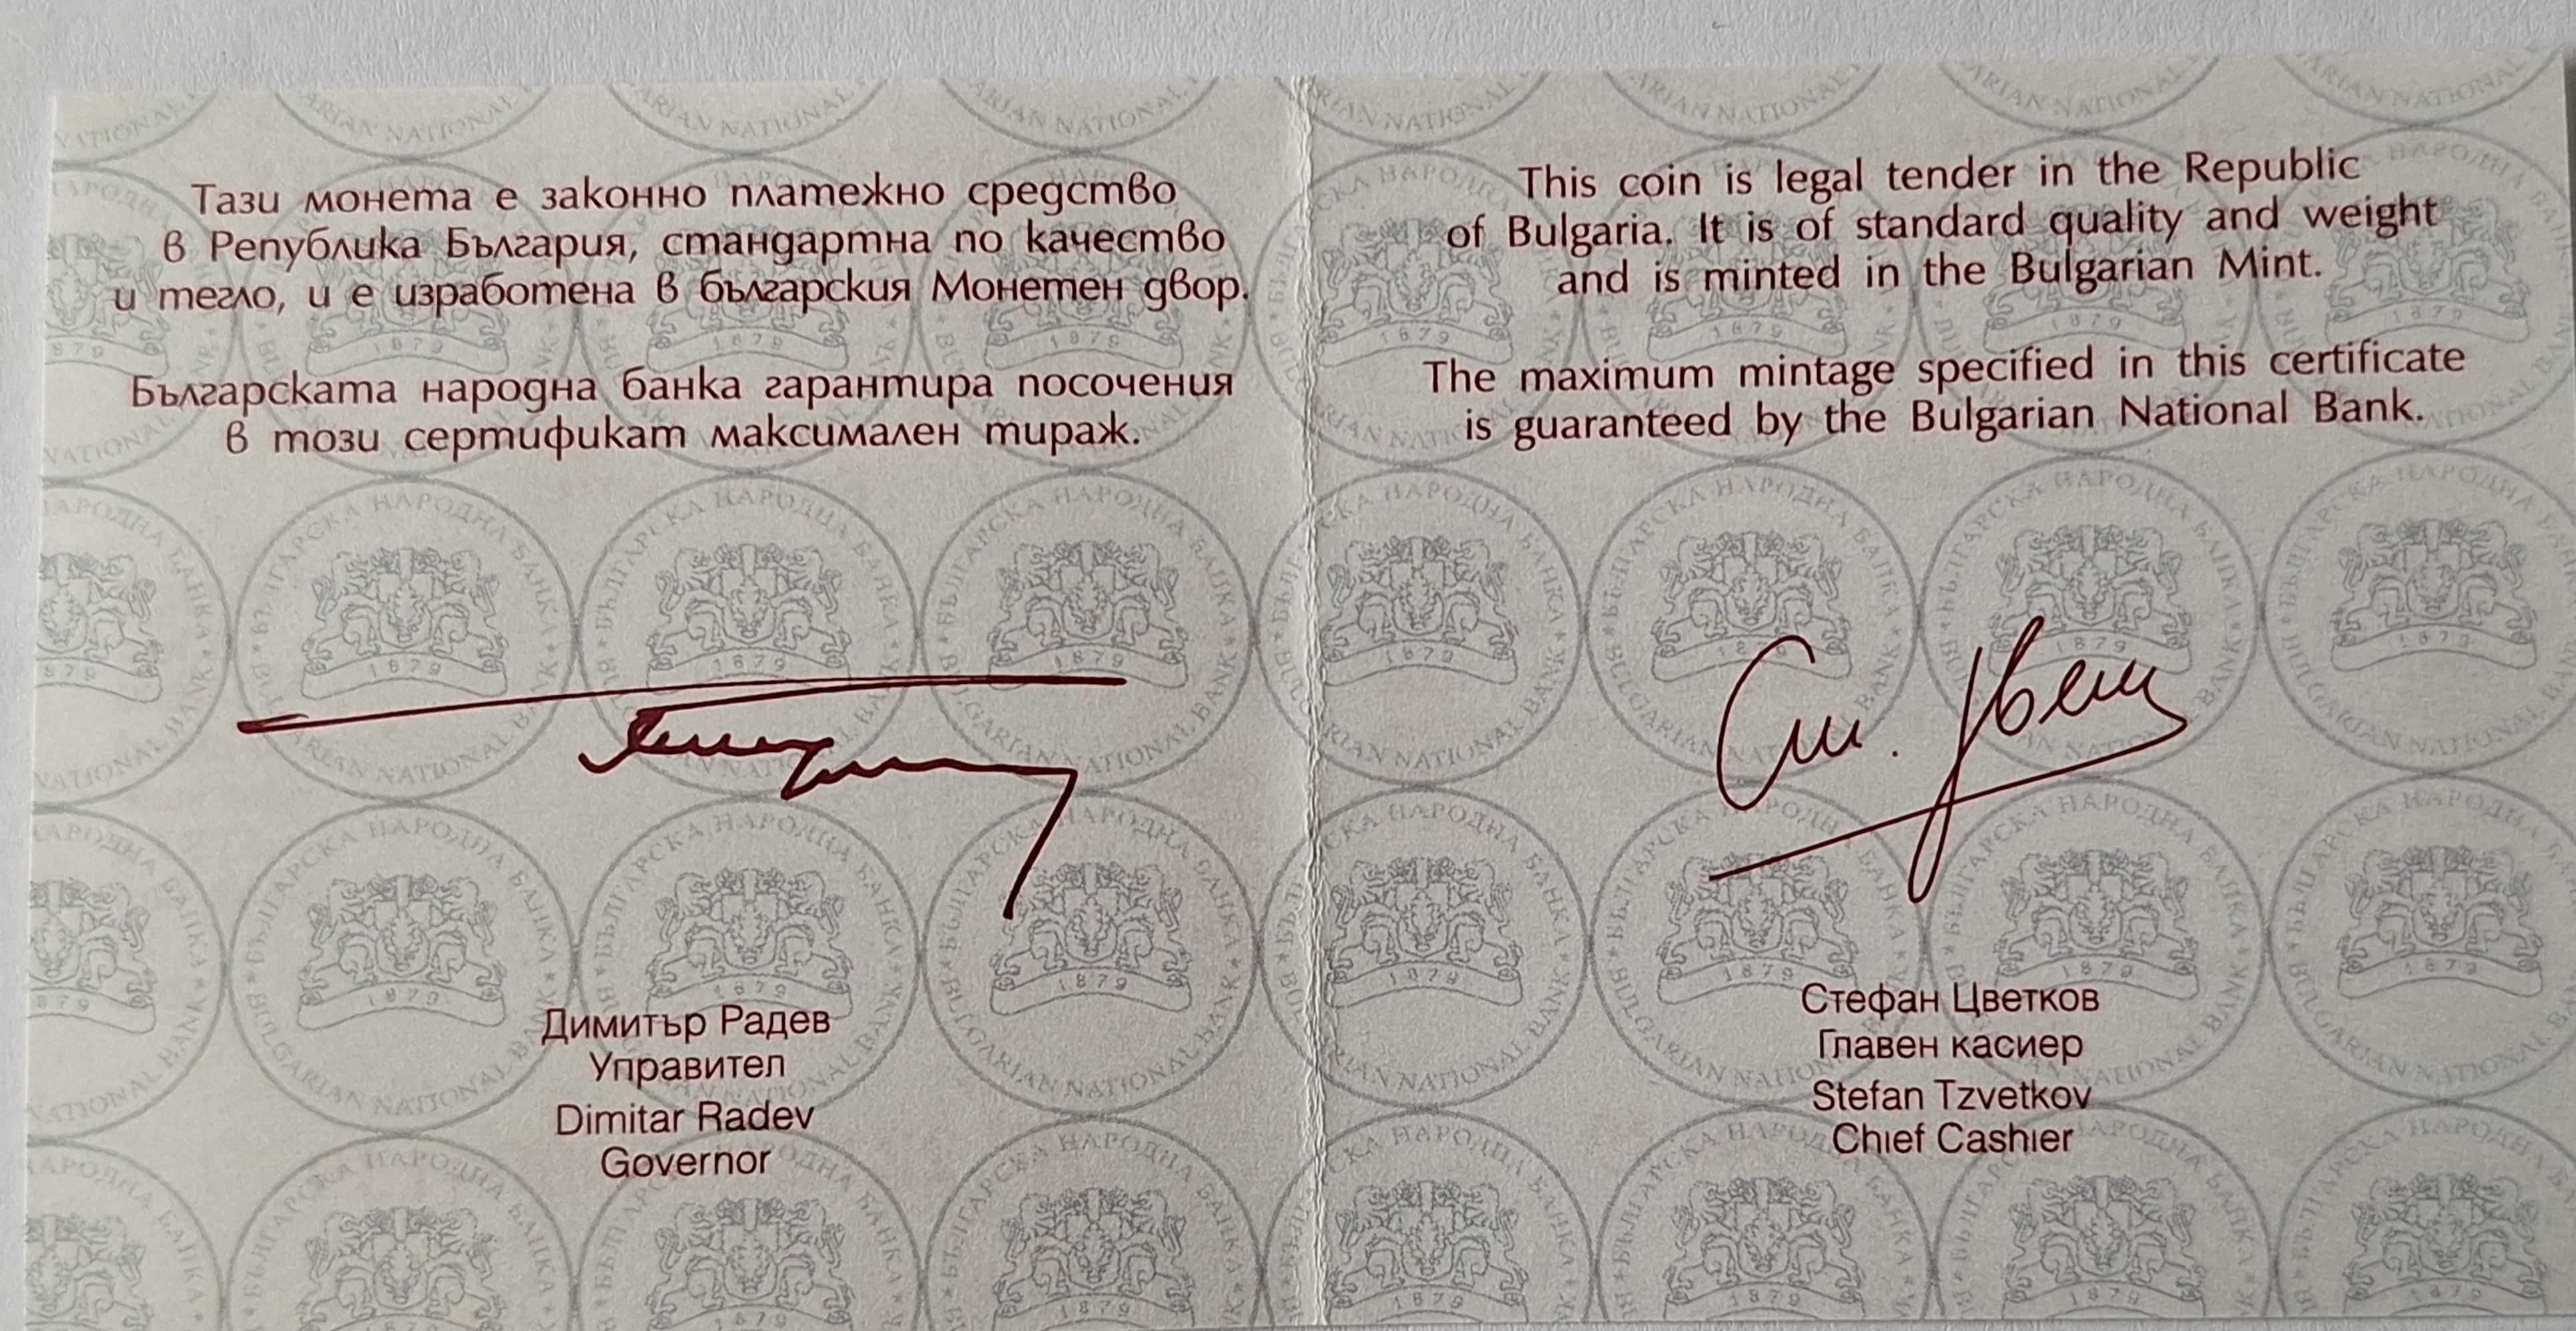 Тази монета е законно платежно средство
в Република България, стандартна по качество
и тегло, и е изработена в българския Монетен двор.
Българската народна банка гарантира посочения
в този сертификат максимален тираж.
Димитър Радев
Управител
Dimitar Radev
Governor
This coin is legal tender in the Republic
of Bulgaria. It is of standard quality and weight
and is minted in the Bulgarian Mint.
The maximum mintage specified in this certificate
is guaranteed by the Bulgarian National Bank.
Ст. Цвет
Стефан Цветков
Главен касиер
Stefan Tzvetkov
Chief Cashier
БЪЛГАРСКА НАРОДНА БАНКА
BULGARIAN NATIONAL BANK
1879